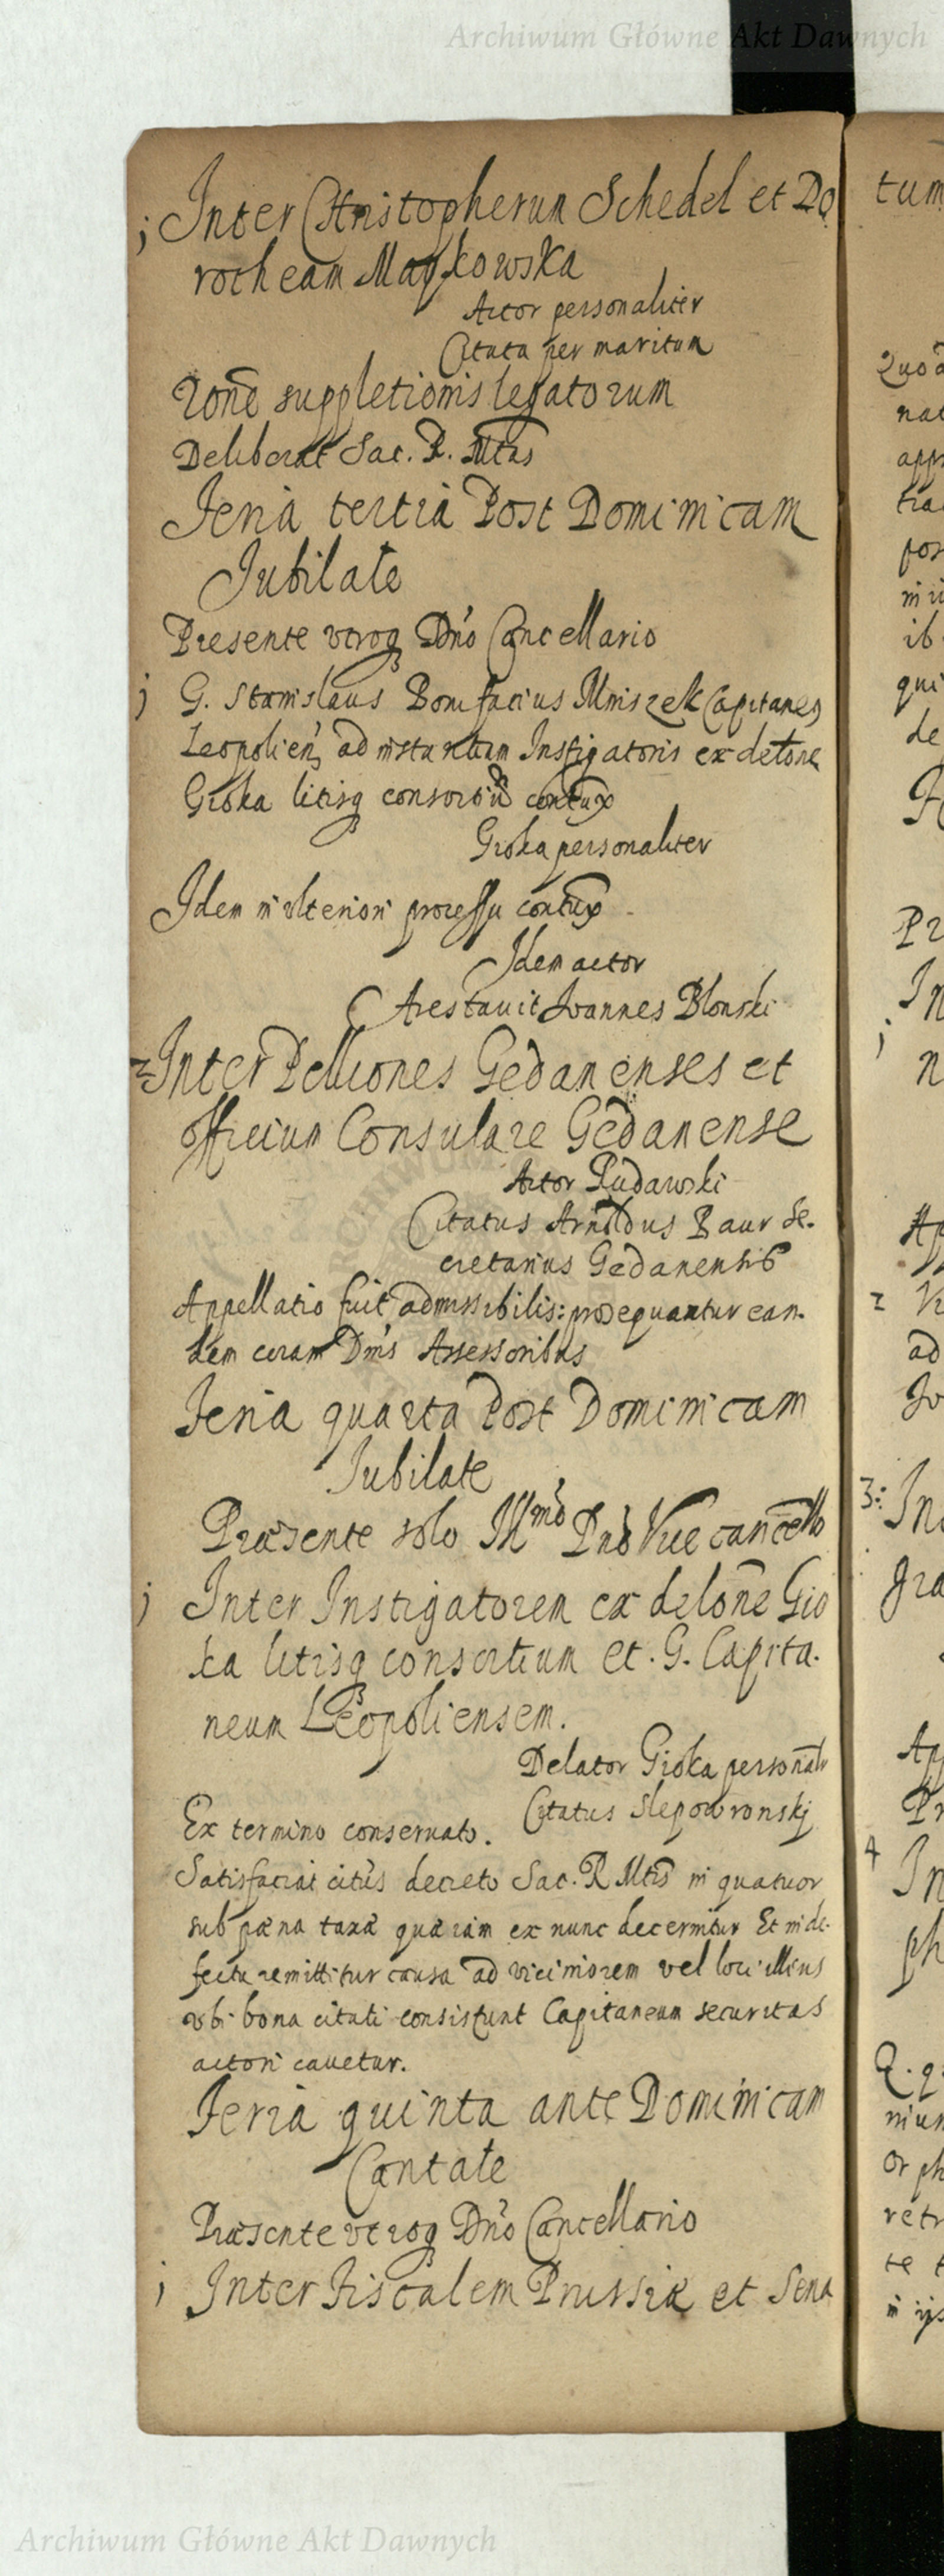 Archiwum Główne Akt Dawnych
j Inter Christopherum Schedel et Do
rotheam Maykowska
Actor personaliter
Citata per maritum
Rone suppletionis legatorum
Deliberat Sac. R. Mtas
Feria tertia Post Dominicam
Jubilate
Presente utroq Dno Cancellario
j G. Stanislaus Bonifacius Mniszek Capitaneus
Leopolien ad instantiam Instigatoris ex delone
Gioka litisq consortiu contux
Gioka personaliter
Idem in ulteriori processu contux
Idem actor
Arestavit Joannes Blonski
2 Inter Pelliones Gedanenses et
officium Consulare Gedanense
Actor Rudawski
Citatus Arnoldus Baur Se-
cretarius Gedanensis
Appellatio fuit admissibilis: prosequantur ean-
dem coram Dnis Assessoribus
Feria quarta Post Dominicam
Jubilate
Præsente solo Illmo Dno Vicecancello
j Inter Instigatorem ex delone Gio
ka litisq consortium et G. Capita-
neum Leopoliensem.
Delator Gioka personalr
Citatus Slepowronskj
Ex termino conservato.
Satisfaciat citus decreto Sac. R Mtis in quatuor
sub pæna taxæ quæ iam ex nunc decernitur Et in de-
fectu remittitur causa ad viciniorem vel loci illius
ubi bona citati consistunt Capitaneum securitas
actori cavetur.
Feria quinta ante Dominicam
Cantate
Præsente utroq Dno Cancellario
j Inter Fiscalem Prussiæ et Sena
tum
Quod
nat
app
tra
pos
ib
qui
de
Pr
In
j n
Ap
2
ad
Jo
3: In
gra
Ap
Pr
4 In
ph
Q. qu
niun
orph
retr
te t
Archiwum Główne Akt Dawnych